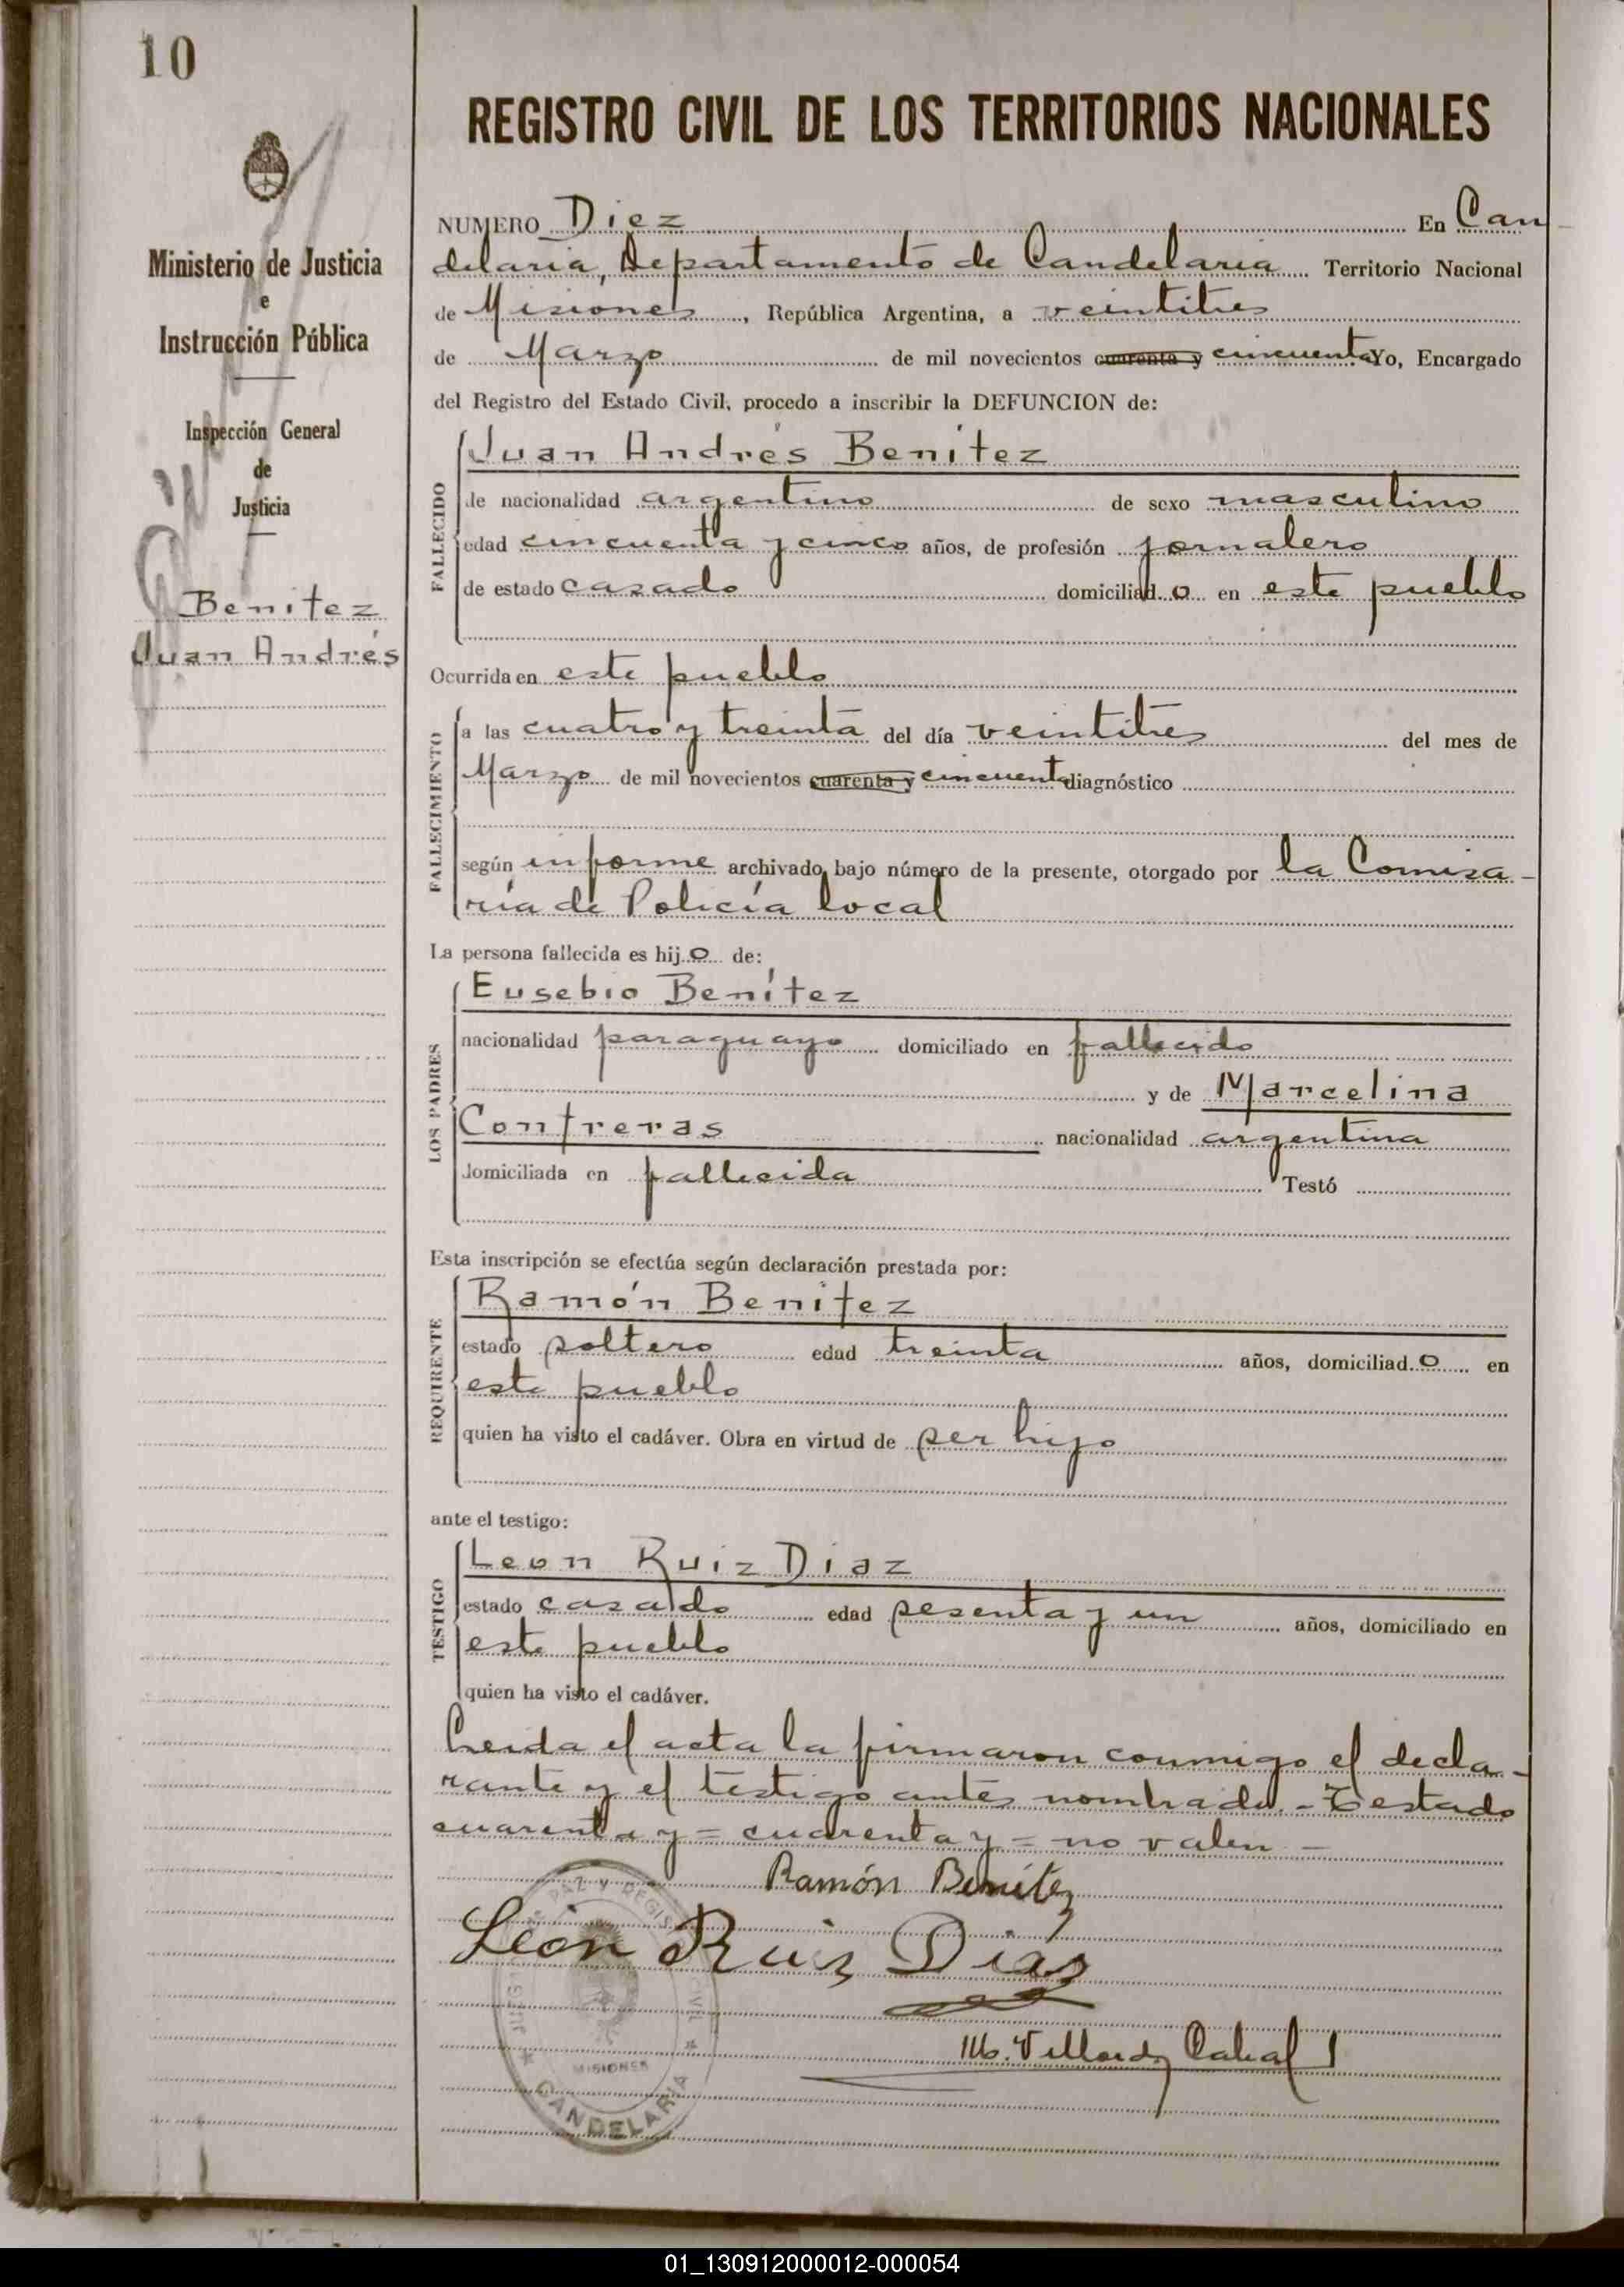 10
REGISTRO CIVIL DE LOS TERRITORIOS NACIONALES
Ministerio de Justicia
e
Instrucción Pública
Inspección General
de
Justicia
Benítez
Juan Andrés
NUMERO Diez En Can
delaria, Departamento de Candelaria Territorio Nacional
de Misiones, República Argentina, a veintitres
de Marzo de mil novecientos cuarenta y cincuenta Yo, Encargado
del Registro del Estado Civil, procedo a inscribir la DEFUNCION de:
FALLECIDO
Juan Andrés Benítez
de nacionalidad argentino de sexo masculino
edad cincuenta y cinco años, de profesión jornalero
de estado casado domiciliado en este pueblo
Ocurrida en este pueblo
FALLECIMIENTO
a las cuatro y treinta del día veintitres del mes de
Marzo de mil novecientos cuarenta y cincuenta diagnóstico
según informe archivado bajo número de la presente, otorgado por la Comisa-
ría de Policía local
La persona fallecida es hijo de:
LOS PADRES
Eusebio Benítez
nacionalidad paraguayo domiciliado en fallecido
y de Marcelina
Contreras nacionalidad argentina
domiciliada en fallecida Testó
Esta inscripción se efectúa según declaración prestada por:
REQUIRENTE
Ramón Benítez
estado soltero edad treinta años, domiciliado en
este pueblo
quien ha visto el cadáver. Obra en virtud de ser hijo
ante el testigo:
TESTIGO
Leon Ruiz Diaz
estado casado edad sesenta y un años, domiciliado en
este pueblo
quien ha visto el cadáver.
Leida el acta la firmaron conmigo el decla-
rante y el testigo antes nombrado.- Testado
cuarenta y = cuarenta y = no valen -
Ramón Benítez
León Ruiz Diaz
PAZ Y REGIS CIVIL
MISIONES
CANDELARIA
Cabral
01_130912000012-000054